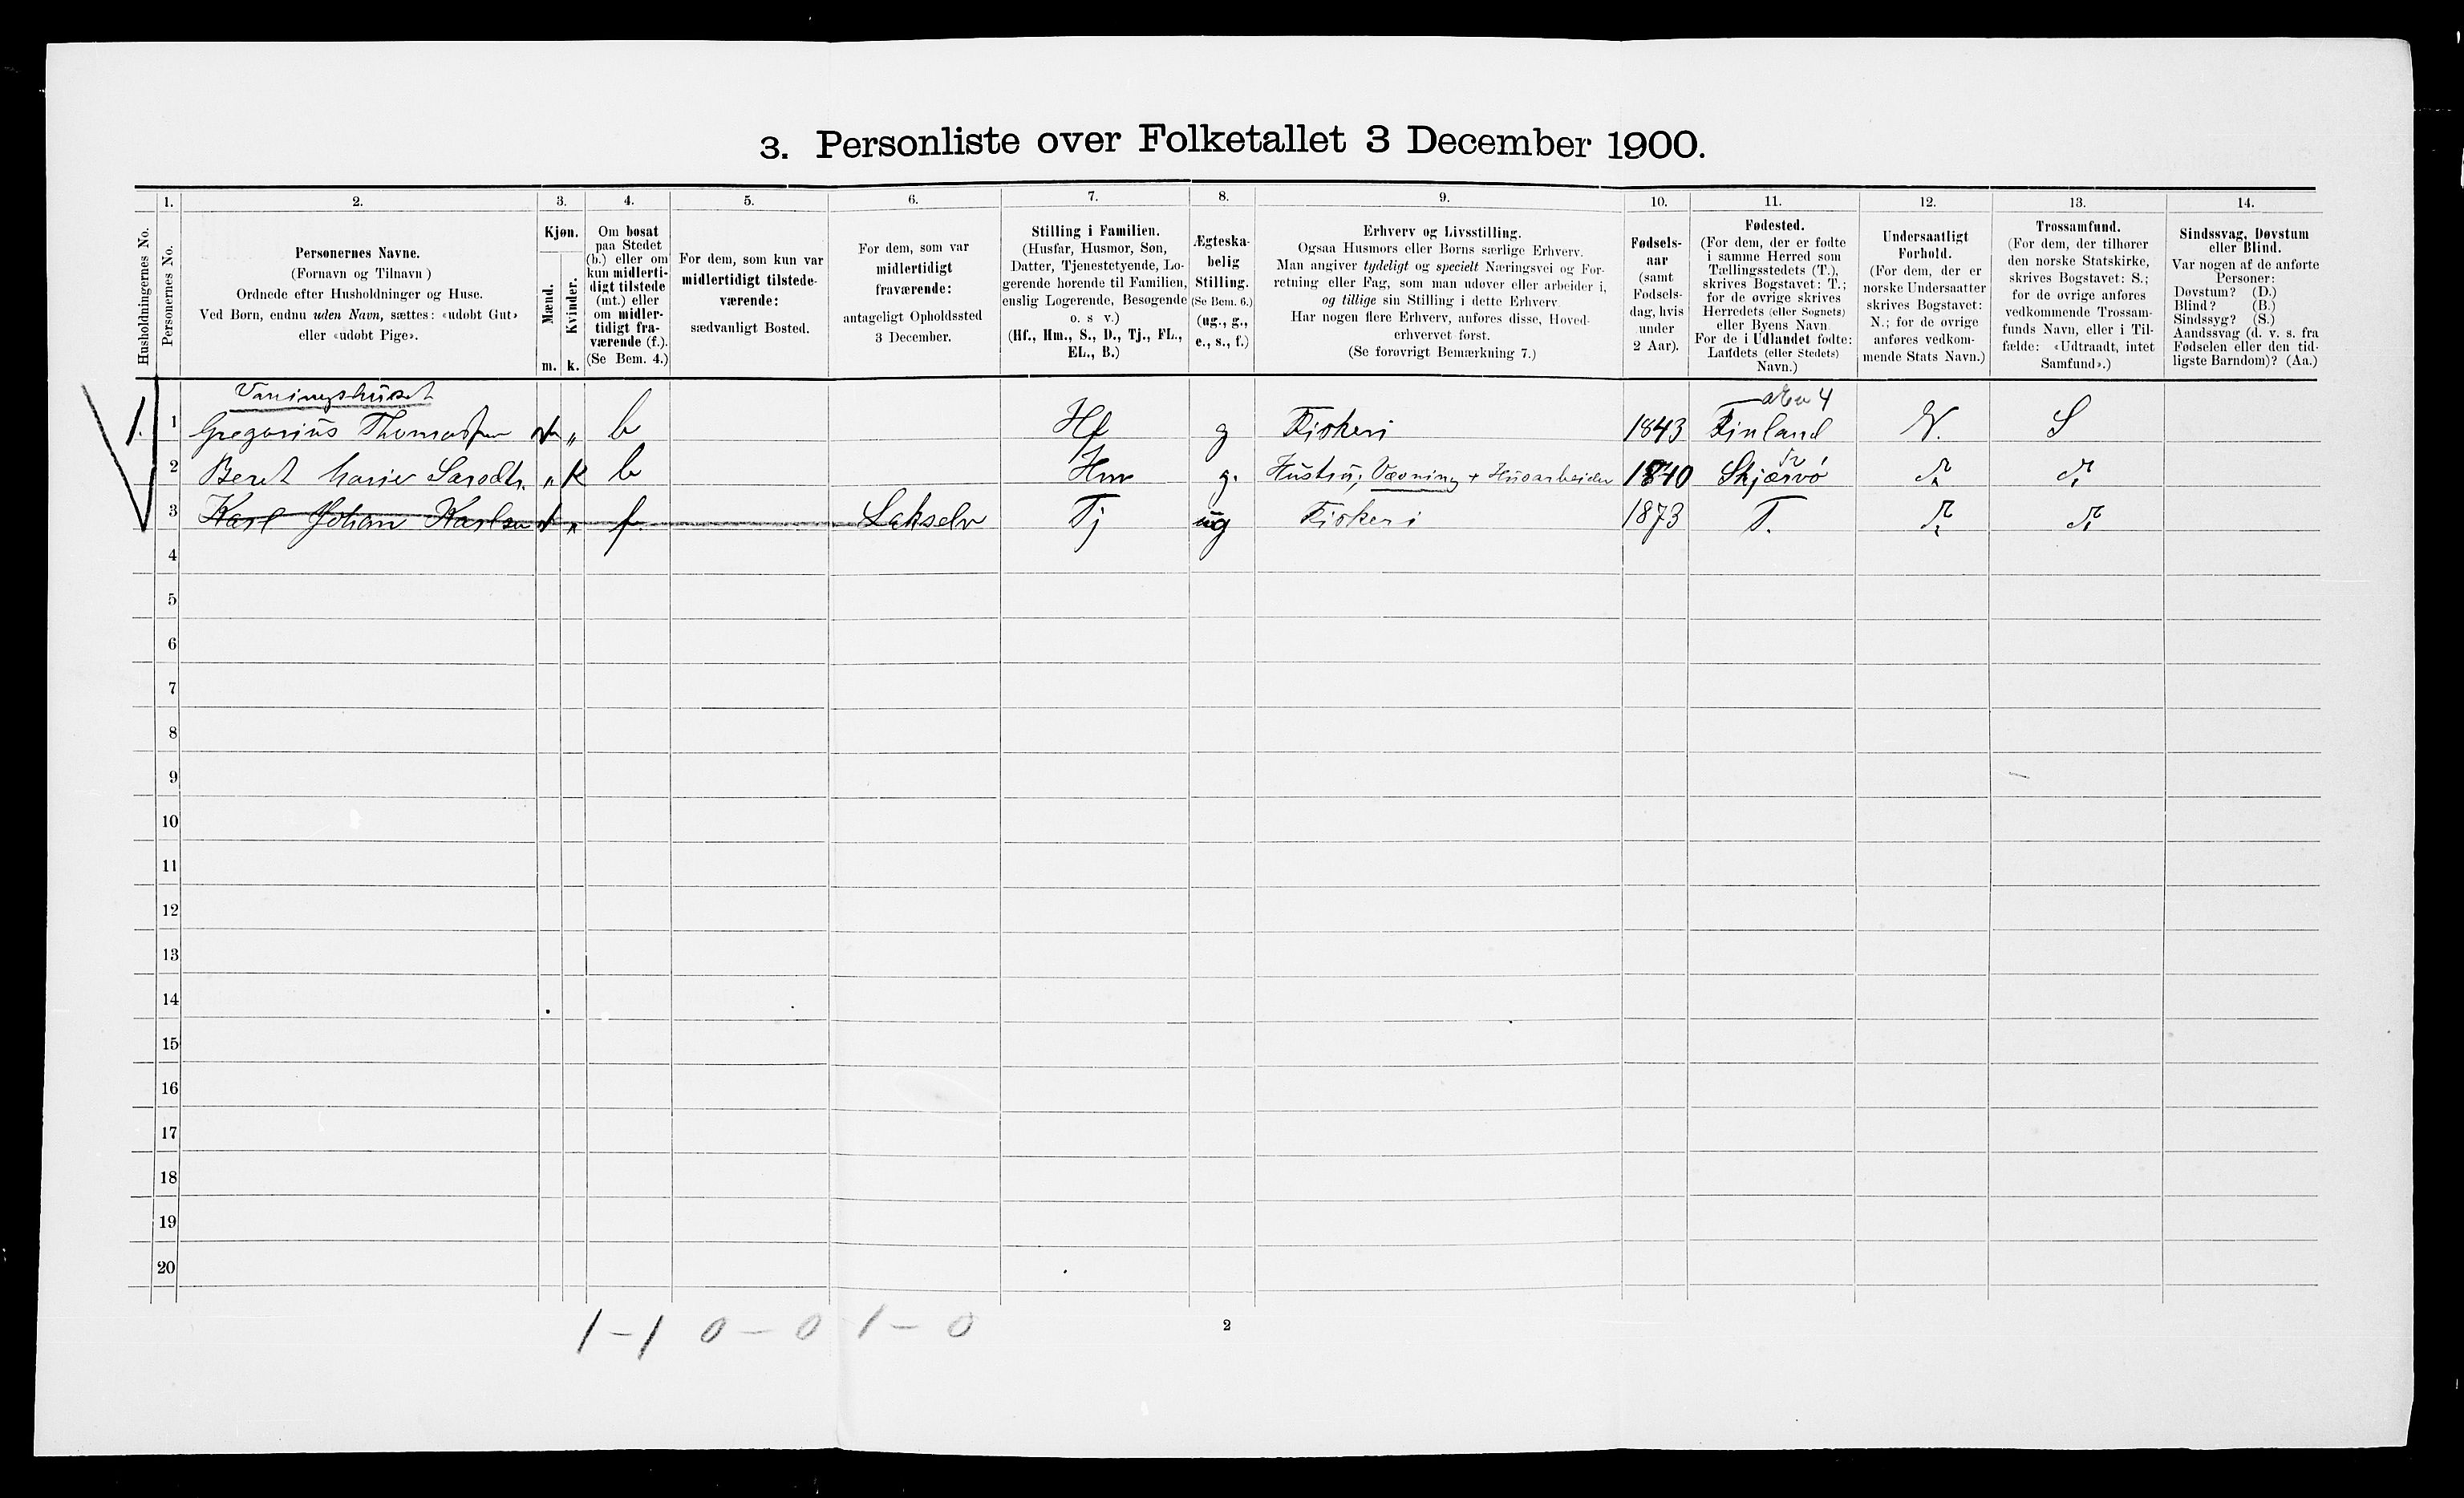 3. Personliste over Folketallet 3 December 1900.
1. 2. 3. 4. 5. 6. 7. 8. 9. 10. 11. 12. 13. 14.
Husholdningernes No.
Personernes No.
Personernes Navne.
(Fornavn og Tilnavn )
Ordnede efter Husholdninger og Huse.
Ved Børn, endnu uden Navn, sættes: «udøbt Gut»
eller «udøbt Pige».
Kjøn.
Mænd.
Kvinder.
m. k.
Om bosat
paa Stedet
(b.) eller om
kun midlerti-
digt tilstede
(mt.) eller
om midler-
tidigt fra-
værende (f.).
(Se Bem. 4.)
For dem, som kun var
midlertidigt tilstede-
værende:
sædvanligt Bosted.
For dem, som var
midlertidigt
fraværende:
antageligt Opholdssted
3 December.
Stilling i Familien.
(Husfar, Husmor, Søn,
Datter, Tjenestetyende, Lo-
gerende hørende til Familien,
enslig Logerende, Besøgende
o. s v.)
(Hf., Hm., S., D., Tj., FL.,
EL., B.)
Ægteska-
belig
Stilling.
(Se Bem. 6.)
(ug., g.,
e., s., f.)
Erhverv og Livsstilling.
Ogsaa Husmors eller Børns særlige Erhverv.
Man angiver tydeligt og specielt Næringsvei og For-
retning eller Fag, som man udøver eller arbeider i,
og tillige sin Stilling i dette Erhverv
Har nogen flere Erhverv, anføres disse, Hoved-
erhvervet først.
(Se forøvrigt Bemærkning 7.)
Fødsels-
aar
(samt
Fødsels-
dag, hvis
under
2 Aar).
Fødested.
(For dem, der er fødte
i samme Herred som
Tællingsstedets (T.),
skrives Bogstavet: T.;
for de øvrige skrives
Herredets (eller Sognets)
eller Byens Navn
For de i Udlandet fødte:
Landets (eller Stedets)
Navn.)
Undersaatligt
Forhold.
(For dem, der er
norske Undersaatter
skrives Bogstavet:
N.; for de øvrige
anføres vedkom-
mende Stats Navn.)
Trossamfund.
(For dem, der tilhører
den norske Statskirke,
skrives Bogstavet: S.;
for de øvrige anføres
vedkommende Trossam-
funds Navn, eller i Til-
fælde: «Udtraadt, intet
Samfund».)
Sindssvag, Døvstum
eller Blind.
Var nogen af de anførte
Personer:
Døvstum? (D.)
Blind? (B.)
Sindssyg? (S.)
Aandssvag (d. v. s. fra
Fødselen eller den tid-
ligste Barndom)? (Aa.)
Vaaningshuset
1. 1 Gregorius Thomassen m „ b Hf g Fiskeri 1843 Finland N. S
2 Beret Marie Larsdtr. „ k b Hm g. Hustru; Vævning + Husarbeider 1840 Skjærvø
3 Karl Johan Karlsen „ f. Lakselv Tj ug Fiskeri 1873 T.
4
5
6
7
8
9
10
11
12
13
14
15
16
17
18
19
20
1 – 1 0 – 0 1 – 0
2